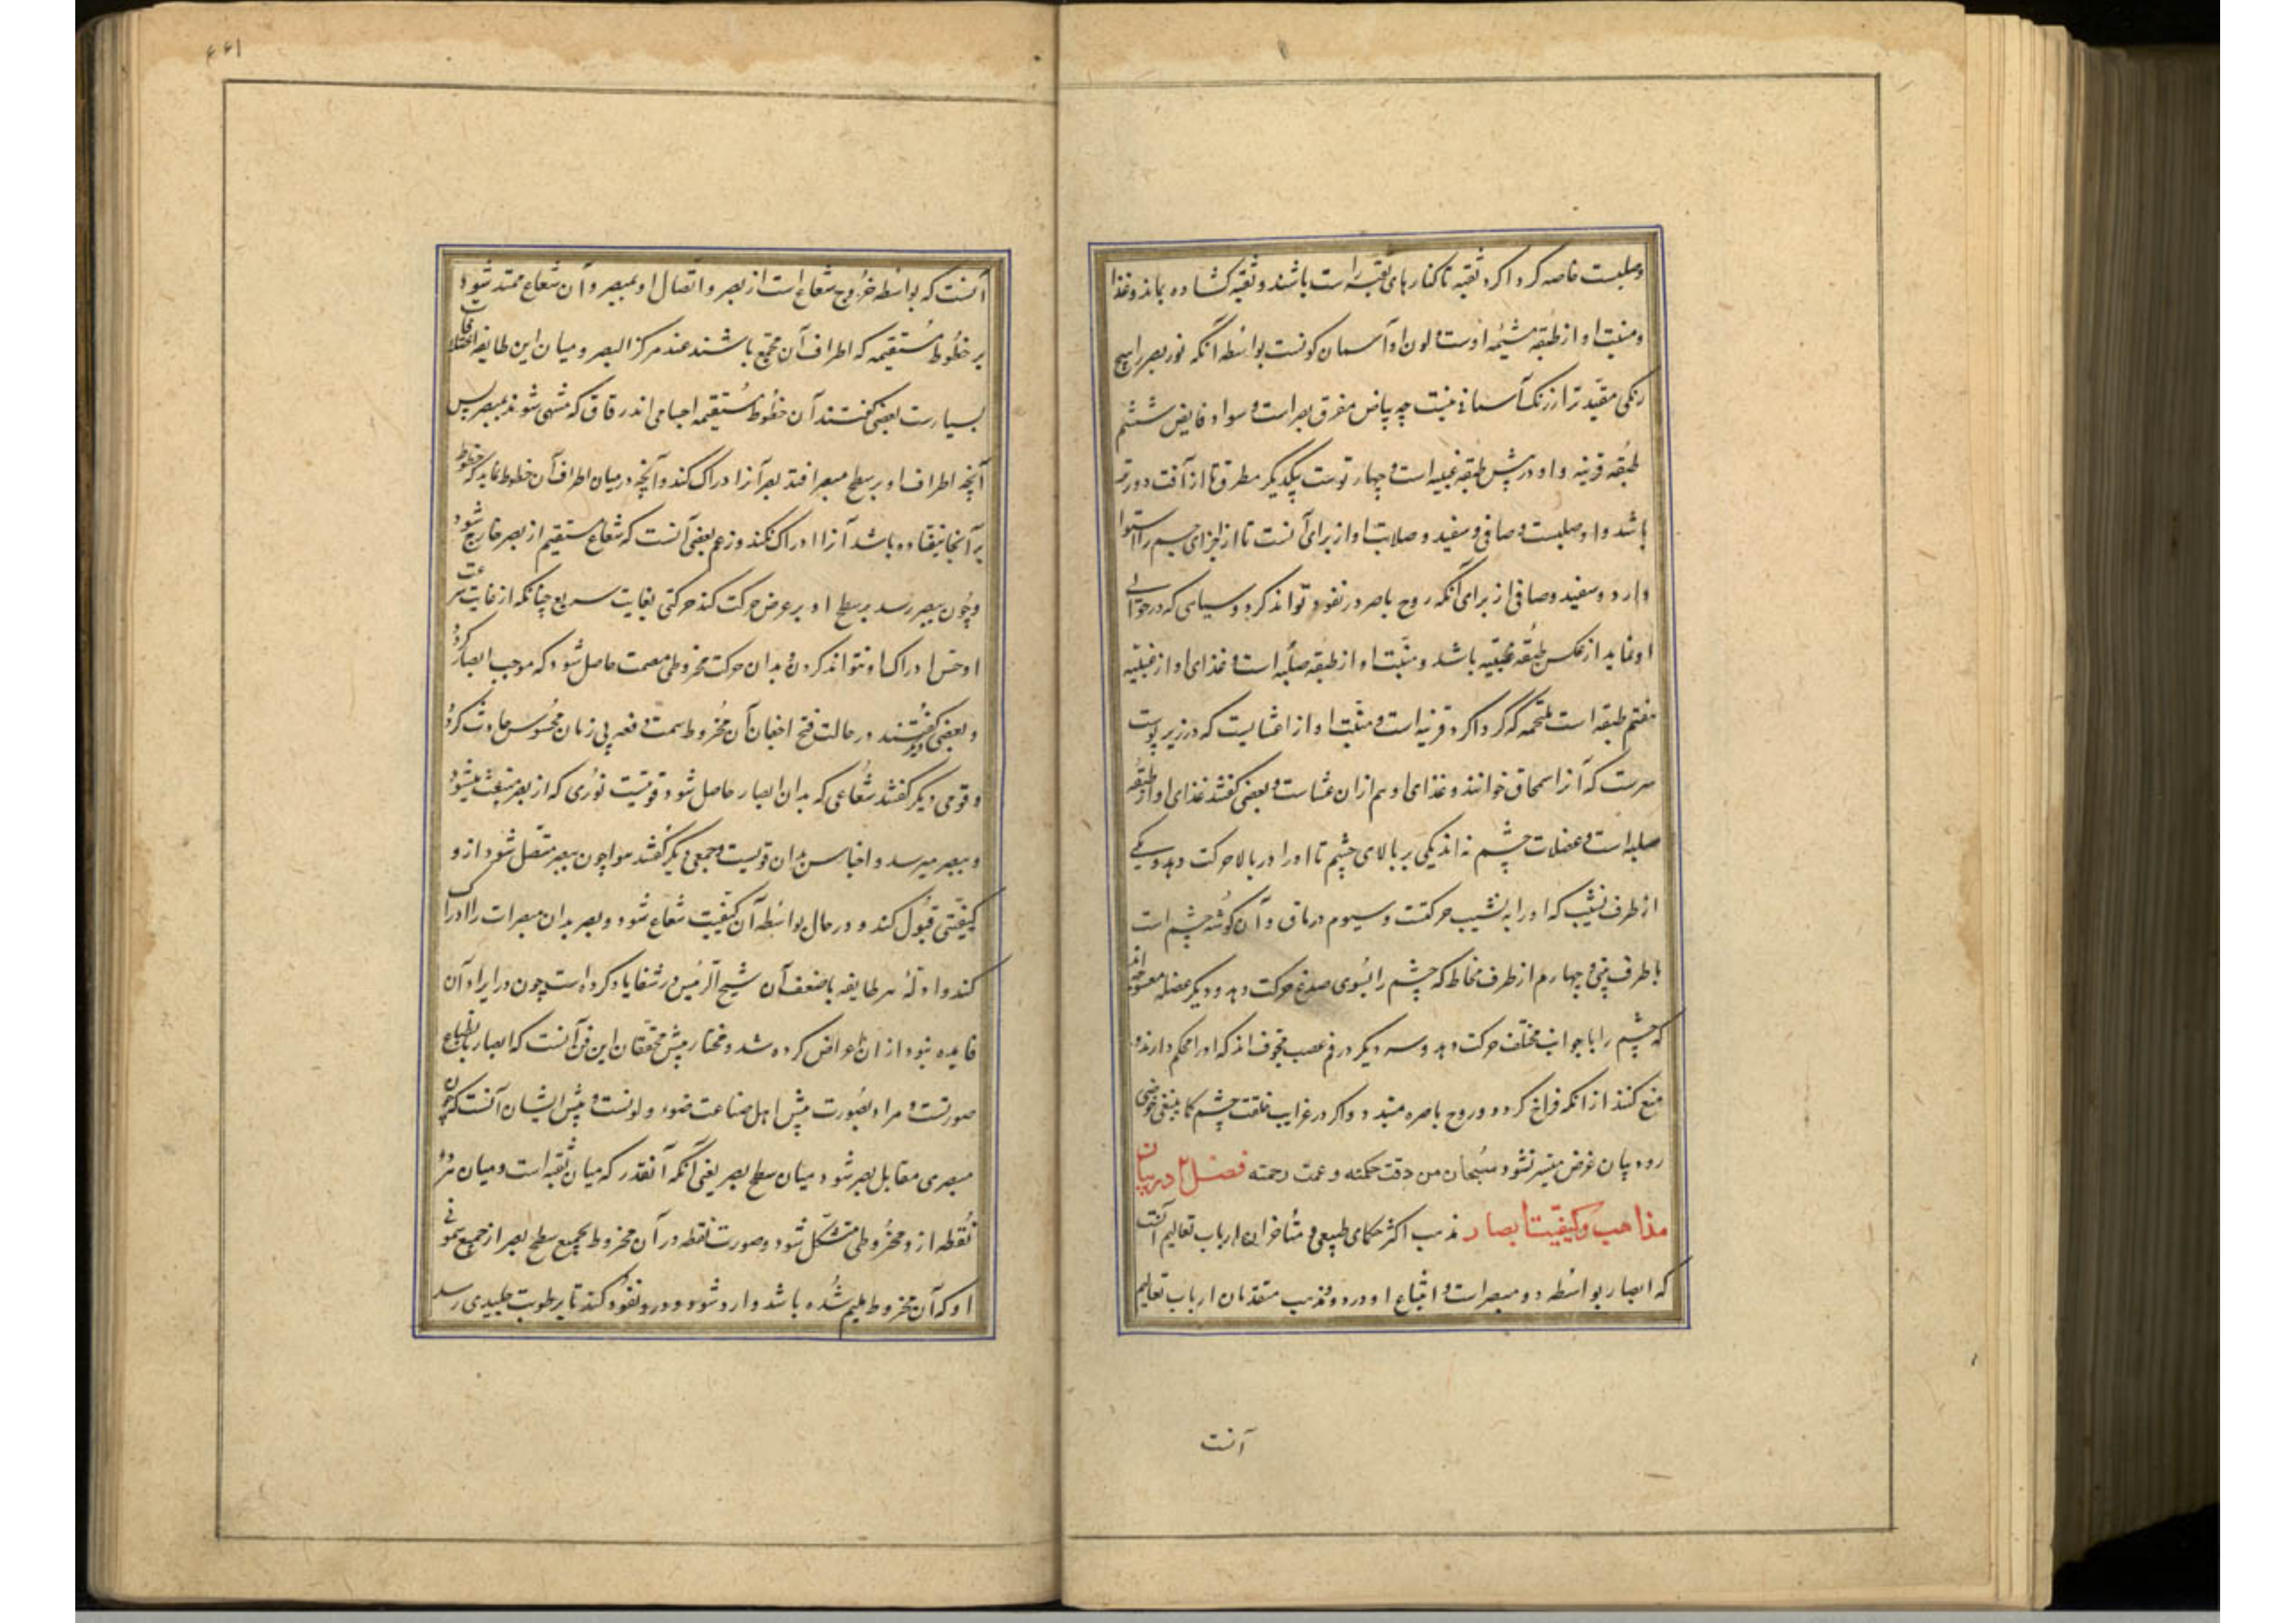 وصلبست خاصه کرد اکرد ثقبه تا کنارهای ثقبه راست باشند و ثقبه کشاده بماند و غذا
و منبت او از طبقه مشیمه اوست و لون او آسمان کونست بواسطه آنکه نور بصر را هیچ
رنکی مقید تر از رنک آسمانی نیست چه بیاض مفرق بصر است و سواد قابض ششم
طبقه قرنیه و او در پیش طبقه عنبیه است و چهار توست بیکدیکر مطرق تا از آفت دورتر
باشد و او صلبست و صافی و سفید و صلابت او از برای آنست تا از اجزای چشم را استوار
دارد و سفید و صافی از برای آنکه روح باصر در نفوذ تواند کرد و سیاهی که در حوالی
او نماید از عکس طبقه عنبیه باشد و منبت او از طبقه صلبه است و غذای او از عنبیه
هفتم طبقه است ملتحمه که کرد اکرد قرنیه است و منبت او از اغشایست که در زیر پوست
سرست که آنرا سمحاق خوانند و غذای او هم ازان غشاست و بعضی کفتند غذای او از طبقه
صلبه است و عضلات چشم نه اند یکی بر بالای چشم تا او را در بالا حرکت دهد و یکی
از طرف نشیب که او را به نشیب حرکتست و سیوم در ماق و آن کوشه چشم است
با طرف بینی و چهارم از طرف لحاظ که چشم را بسوی صدغ حرکت دهد و دو دیکر عضله معوجه اند
که چشم را با جوانب مختلف حرکت دهد و سه دیکر در فم عصب مجوف اند که او را محکم دارند و
منع کنند از انکه فراخ کردد و روح باصره مبتدد و اکر در غرایب خلقت چشم کما ینبغی خوضی
رود بیان غرض میسر نشود سبحان من دقت حکمته و عمت رحمته فصل ۲ در بیان
مذاهب و کیفیت ابصار مذهب اکثر حکمای طبیعی و متأخران ارباب تعالیم آنست
که ابصار بواسطه دو مبصر است و انتباع او در و مذهب متقدمان ارباب تعالیم
آنست
۴۴۱
آنست که بواسطه خروج شعاع است از بصر و اتصال او بمبصر و آن شعاع ممتد شود
بر خطوط مستقیمه که اطراف آن مجتمع باشند عند مرکز البصر و میان این طایفه اختلافات
بسیارست بعضی کفتند آن خطوط مستقیمه اجسامی اند رقاق که منتهی شوند بمبصر پس
آنچه اطراف او بر سطح مبصر افتد بصر آنرا ادراک کند و آنچه در میان اطراف آن خطوط نماید که خطوط
بر آنجا نیفتاده باشد آنرا ادراک نکند و زعم بعضی آنست که شعاع مستقیم از بصر خارج شود
و چون بمبصر رسد بر سطح او بر عرض حرکت کند حرکتی بغایت سریع چنانکه از غایت سرعت
او حس ادراک او نتواند کردن و بدان حرکت مخروطی مصمت حاصل شود که موجب ابصار کردد
و بعضی دیکر کفتند در حالت فتح اجفان آن مخروط مصمت دفعه بی زمان محسوس حادث کردد
و قومی دیکر کفتند شعاعی که بدان ابصار حاصل شود قوتیست نوری که از بصر منبعث میشود
و بمبصر میرسد و احساس بدان قویست و جمعی دیکر کفتند هوا چون ببصر متصل شود ازو
کیفیتی قبول کند و در حال بواسطه آن کیفیت شعاع شود و بصر بدان مبصرات را ادراک
کند و ادلهٔ هر طایفه با ضعف آن شیخ الرئیس در شفا یاد کرده است چون در ایراد آن
فایده نبود از ان اعراض کرده شد و مختار پیش محققان این فن آنست که ابصار بانطباع
صورتست و مراد بصورت پیش اهل صناعت ضوء و لونست و پیش ایشان آنست که چون
مبصری مقابل بصر شود میان سطح بصر یعنی آنکه آنقدر که میان ثقبه است و میان هر
نقطه ازو مخروطی متشکل شود و صورت نقطه در آن مخروط بجمیع سطح بصر از جمیع
او که آن مخروط ملیم شده باشد وارد شود و درو نفوذ کند تا برطوبت جلیدی رسد